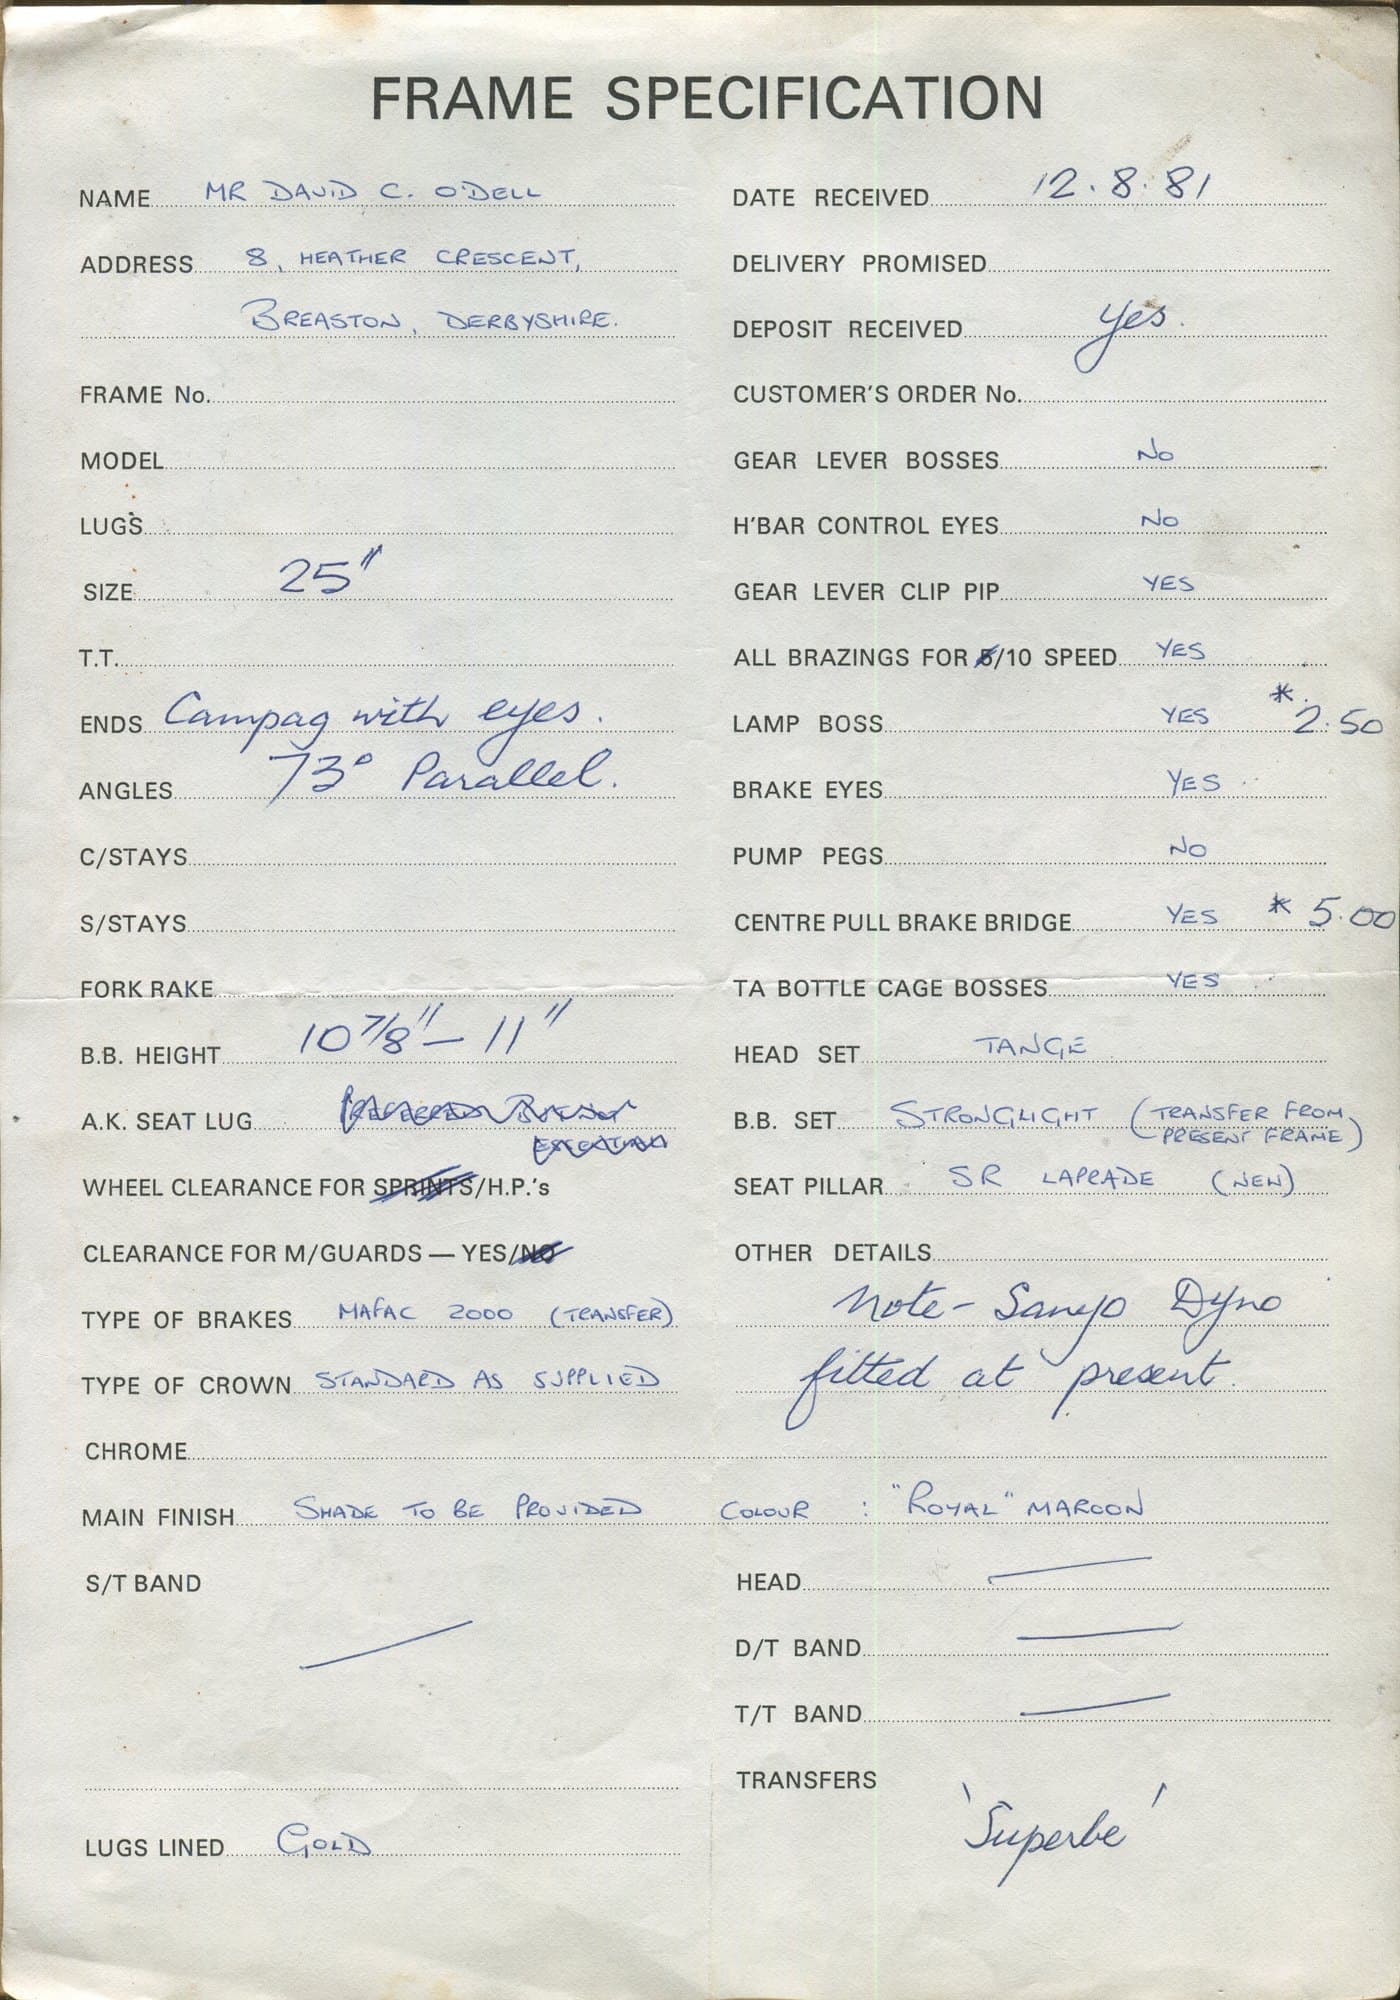 FRAME SPECIFICATION
NAME MR DAVID C. O'DELL
ADDRESS 8, HEATHER CRESCENT,
BREASTON, DERBYSHIRE.
FRAME No.
MODEL
LUGS
SIZE 25"
T.T.
ENDS Campag with eyes.
ANGLES 73° Parallel.
C/STAYS
S/STAYS
FORK RAKE
B.B. HEIGHT 10 7/8" – 11"
A.K. SEAT LUG
WHEEL CLEARANCE FOR SPRINTS/H.P.'s
CLEARANCE FOR M/GUARDS — YES/NO
TYPE OF BRAKES MAFAC 2000 (TRANSFER)
TYPE OF CROWN STANDARD AS SUPPLIED
DATE RECEIVED 12.8.81
DELIVERY PROMISED
DEPOSIT RECEIVED Yes.
CUSTOMER'S ORDER No.
GEAR LEVER BOSSES No
H'BAR CONTROL EYES No
GEAR LEVER CLIP PIP YES
ALL BRAZINGS FOR 5/10 SPEED YES
LAMP BOSS YES * 2.50
BRAKE EYES YES
PUMP PEGS No
CENTRE PULL BRAKE BRIDGE YES * 5.00
TA BOTTLE CAGE BOSSES YES
HEAD SET TANGE
B.B. SET STRONGLIGHT (TRANSFER FROM
PRESENT FRAME)
SEAT PILLAR SR LAPRADE (NEW)
OTHER DETAILS
Note - Sanyo Dyno
fitted at present.
CHROME
MAIN FINISH SHADE TO BE PROVIDED COLOUR : "ROYAL" MAROON
S/T BAND
LUGS LINED GOLD
HEAD
D/T BAND
T/T BAND
TRANSFERS
'Superbe'